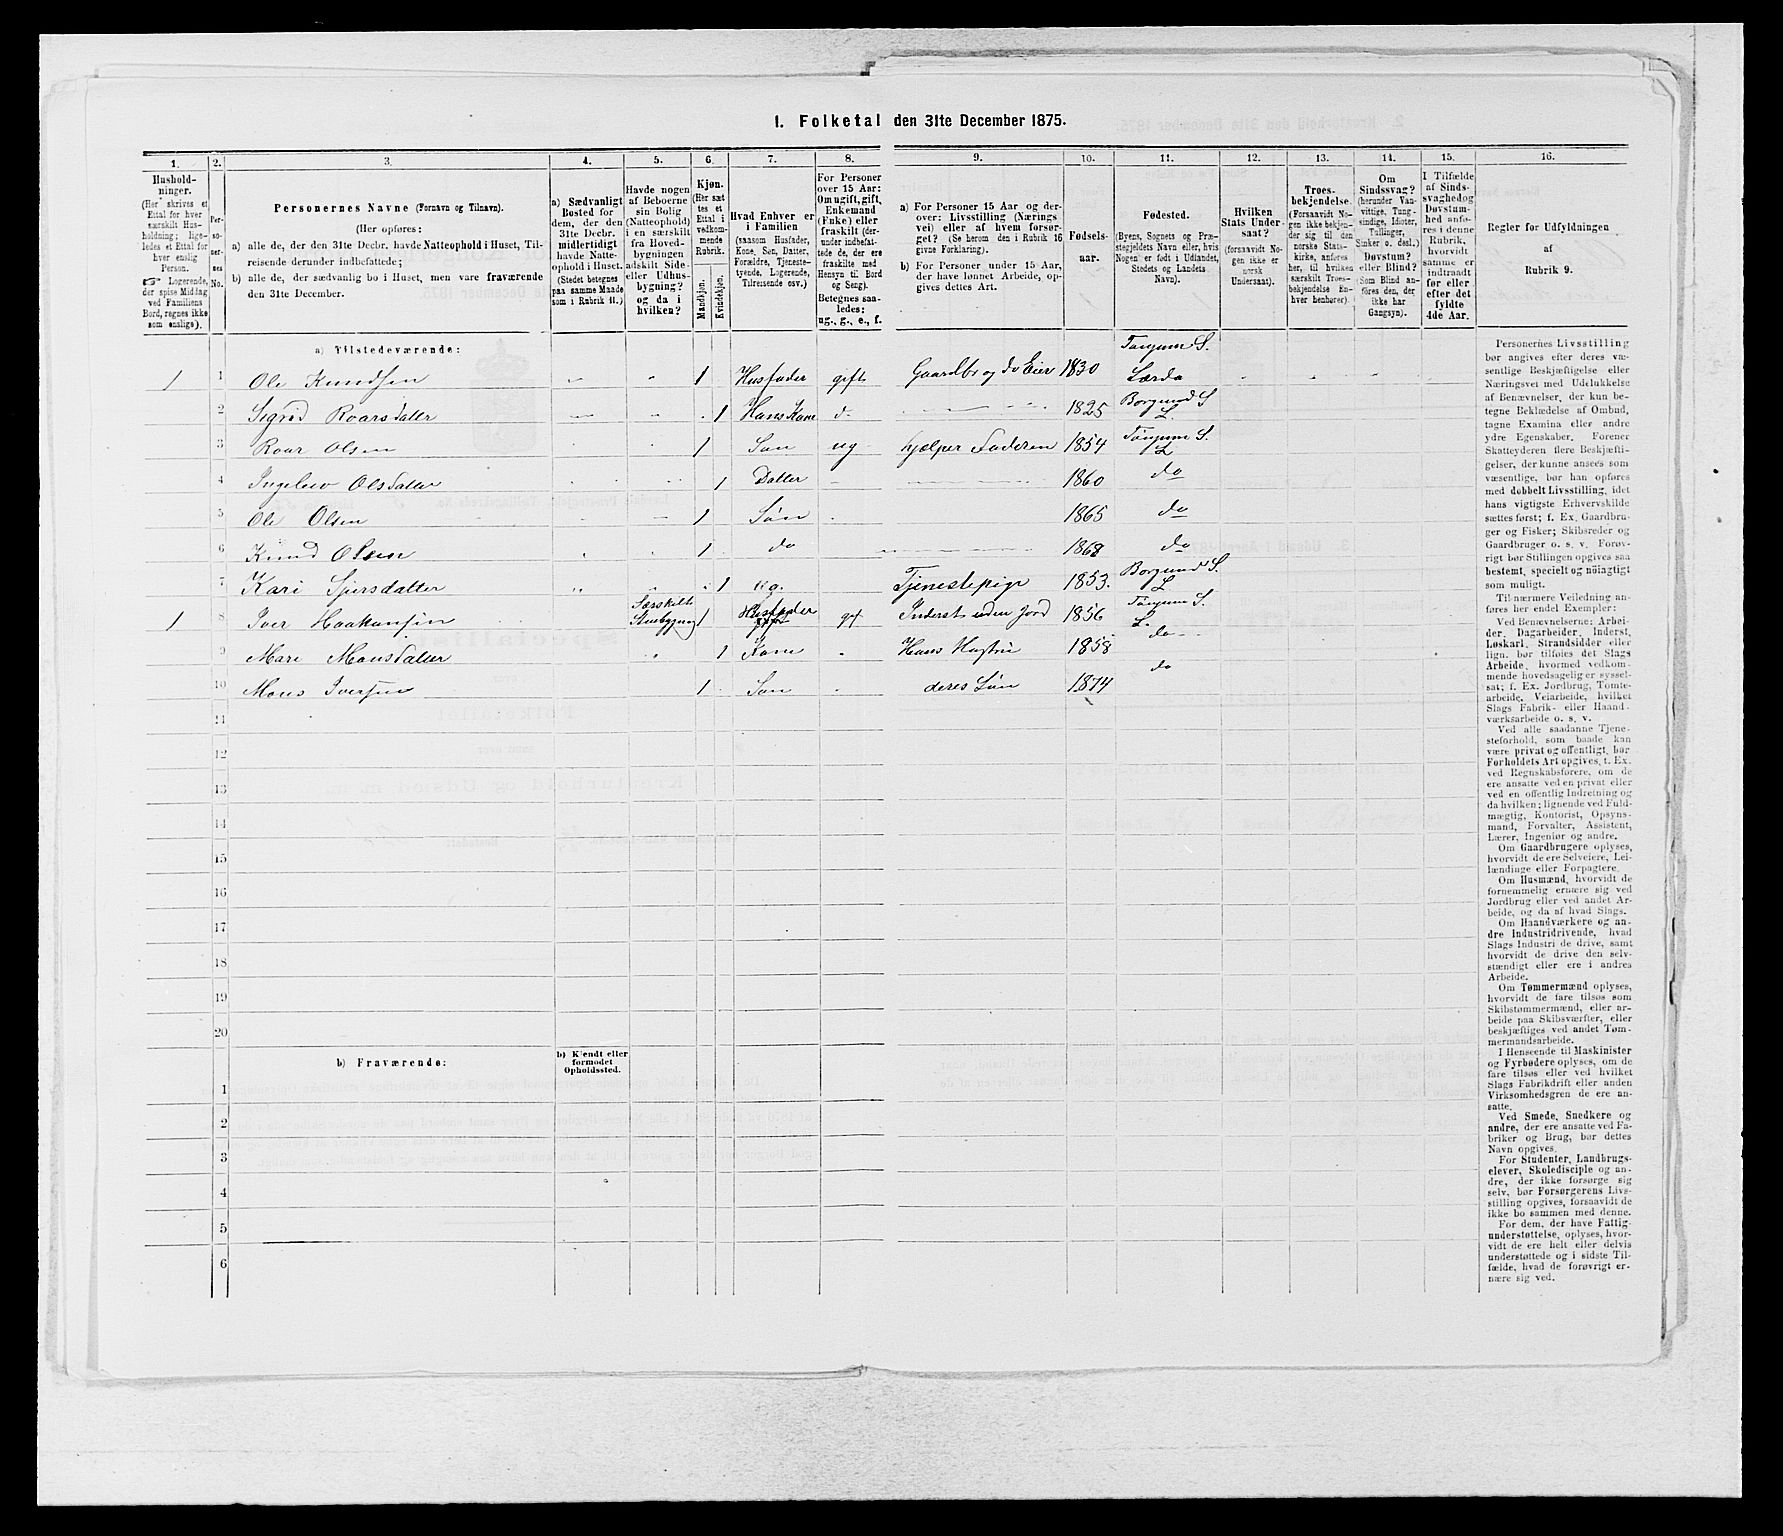 1. Folketal den 31te December 1875.
1. 2. 3. 4. 5. 6. 7. 8. 9. 10. 11. 12. 13. 14. 15. 16.
Hushold-
ninger.
(Her skrives et
Ettal for hver
særskilt Hus-
holdning; lige-
ledes et Ettal for
hver enslig
Person.
☞ Logerende,
der spise Middag
ved Familiens
Bord, regnes ikke
som enslige).
Per-
so-
ner-
nes
No.
Personernes Navne (Fornavn og Tilnavn).
(Her opføres:
a) alle de, der den 31te Decbr. havde Natteophold i Huset, Til-
reisende derunder indbefattede;
b) alle de, der sædvanlig bo i Huset, men vare fraværende
den 31te December.
a) Sædvanligt
Bosted for
dem, der den
31te Decbr.
midlertidigt
havde Natte-
ophold i Huset.
(Stedet betegnes
paa samme Maade
som i Rubrik 11.)
Havde nogen
af Beboerne
sin Bolig
(Natteophold)
i en særskilt
fra Hoved-
bygningen
adskilt Side-
eller Udhus-
bygning?
og da i
hvilken?
Kjøn.
(Her sæt
tes et
Ettal i
vedkom-
mende
Rubrik.
Mandkjøn.
Kvindekjøn.
Hvad Enhver er
i Familien
(saasom Husfader,
Kone, Søn, Datter,
Forældre, Tjeneste-
tyende, Logerende,
Tilreisende osv.)
For Personer
over 15 Aar:
Om ugift, gift,
Enkemand
(Enke) eller
fraskilt (der-
under indbefat-
tede de, der ere
fraskilte med
Hensyn til Bord
og Seng).
Betegnes saa-
ledes:
ug., g., e., f.
a) For Personer 15 Aar og der-
over: Livsstilling (Nærings
vei) eller af hvem forsør-
get? (Se herom den i Rubrik 16
givne Forklaring).
b) For Personer under 15 Aar,
der have lønnet Arbeide, op-
gives dettes Art.
Fødsels-
aar.
Fødested.
(Byens, Sognets og Præ-
stegjeldets Navn eller, hvis
Nogen er født i Udlandet,
Stedets og Landets
Navn).
Hvilken
Stats Under-
saat?
(forsaavidt No-
gen ikke er
norsk
Undersaat).
Troes-
bekjendelse.
(Forsaavidt No-
gen ikke bekjen-
der sig til den
norske Stats-
kirke, anføres
her, til hvilken
særskilt Troes-
bekjendelse En-
hver henhører).
Om
Sindssvag?
(herunder Van-
vittige, Tung-
sindige, Idioter,
Tullinger,
Sinker o. desl.)
Døvstum?
eller Blind?
(Som Blind an-
føres den, der
ikke har
Gangsyn).
I Tilfælde
af Sinds-
svaghed og
Døvstum-
hed anfø-
res i denne
Rubrik,
hvorvidt
samme er
indtraadt
før eller
efter det
fyldte
4de Aar.
Regler for Udfyldningen
af
Rubrik 9.
a) Tilstedeværende:
1 1 Ole Knudsen 1 Husfader gift Gaardbr og do Eier 1830 Tønjum S. Lærda
2 Sigrid Roarsdatter 1 Hans Kone d- 1825 Borgund S L.
3 Roar Olsen 1 Søn ug hjælper Faderen 1854 Tønjum S. L
4 Ingeleiv Olsdatter 1 Datter 1860 do
5 Ole Olsen 1 Søn 1865 do
6 Knud Olsen 1 do 1868 do
7 Kari Sjursdatter 1 ug. Tjenestepige 1853. Borgund S. L
1 8 Iver Haakonsen Særskilt Stuebygnog 1 Husfader gift Inderst uden Jord 1856 Tønjum S. L.
9 Mari Monsdatter 1 Kone Hans Hustru 1858 do
10 Mons Iversen 1 Søn deres Søn 1874 do
11
12
13
14
15
16
17
18
19
20
b) Fraværende:
b) Kjendt eller
formodet
Opholdssted.
1
2
3
4
5
6
Personernes Livsstilling
bør angives efter deres væ-
sentlige Beskjæftigelse eller
Næringsvei med Udelukkelse
af Benævnelser, der kun be-
tegne Beklædelse af Ombud,
tagne Examina eller andre
ydre Egenskaber. Forener
Skatteyderen flere Beskjæfti-
gelser, der kunne ansees som
væsentlige, bør han opføres
med dobbelt Livsstilling, idet
hans vigtigste Erhvervskilde
sættes først; f. Ex. Gaardbru-
ger og Fisker; Skibsreder og
Gaardbruger o. s. v. Forøv-
rigt bør Stillingen opgives saa
bestemt, specielt og nöiagtigt
som muligt.
Til nærmere Veiledning an-
føres her endel Exempler:
Ved Benævnelserne: Arbei-
der, Dagarbeider, Inderst,
Løskarl, Strandsidder eller
lign. bør tilføies det Slags
Arbeide, hvormed vedkom-
mende hovedsagelig er syssel-
sat; f. Ex. Jordbrug, Tomte-
arbeide, Veiarbeide, hvilket
Slags Fabrik- eller Haand-
værksarbeide o. s. v.
Ved alle saadanne Tjene-
steforhold, som baade kan
være privat og offentligt, bør
Forholdets Art opgives, f. Ex.
ved Regnskabsførere, om de
ere ansatte ved en privat eller
ved en offentlig Indretning og
da hvilken; lignende ved Fuld-
mægtig, Kontorist, Opsyns-
mand, Forvalter, Assistent,
Lærer, Ingeniør og andre.
Om Gaardbrugere oplyses,
hvorvidt de ere Selveiere, Lei-
lændinge eller Forpagtere.
Om Husmænd, hvorvidt de
fornemmelig ernære sig ved
Jordbrug eller ved andet Ar-
beide, og da af hvad Slags.
Om Haandværkere og an-
dre Industridrivende, hvad
Slags Industri de drive, samt
hvorvidt de drive den selv-
stændigt eller ere i andres
Arbeide.
Om Tømmermænd oplyses,
hvorvidt de fare tilsøs som
Skibstømmermænd, eller ar-
beide paa Skibsværfter, eller
beskjæftiges ved andet Tøm-
mermandsarbeide.
I Henseende til Maskinister
og Fyrbødere oplyses, om de
fare tilsøs eller ved hvilket
Slags Fabrikdrift eller anden
Virksomhedsgren de ere an-
satte.
Ved Smede, Snedkere og
andre, der ere ansatte ved Fa-
briker og Brug, bør dettes
Navn opgives.
For Studenter, Landbrugs-
elever, Skoledisciple og an-
dre, der ikke forsørge sig
selv, bør Forsørgerens Livs-
stilling opgives, forsaavidt de
ikke bo sammen med denne.
For dem, der have Fattig-
understøttelse, oplyses, hvor-
vidt de ere helt eller delvis
understøttede og i sidste Til-
fælde, hvad de forøvrigt er-
nære sig ved.